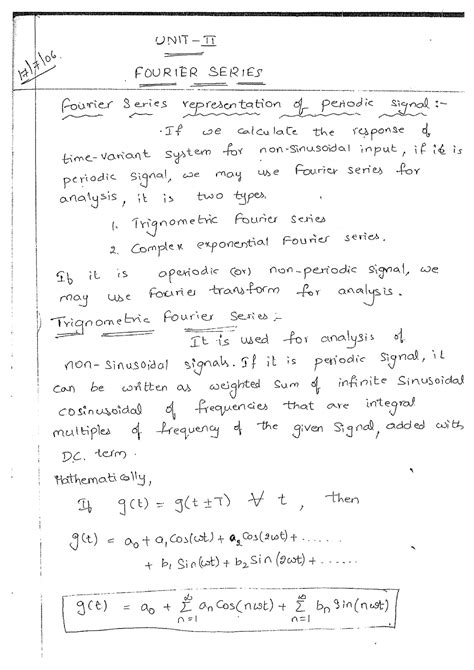 UNIT-II
17/7/06.
FOURIER SERIES
Fourier Series representation of periodic signal:-
If we calculate the response of
time-variant system for non-sinusoidal input, if it is
periodic signal, we may use Fourier series for
analysis, it is two types.
1. Trignometric Fourier Series
2. Complex exponential Fourier series.
If it is aperiodic (or) non-periodic signal, we
may use Fourier transform for analysis.
Trignometric Fourier Series:-
It is used for analysis of
non-sinusoidal signals. If it is periodic signal, it
can be written as weighted sum of infinite sinusoidal
cosinusoidal of frequencies that are integral
multiples of frequency of the given signal, added with
D.C. term.
Mathematically,
If g(t) = g(t±T) ∀ t, then
g(t) = a₀ + a₁ Cos(ωt) + a₂ Cos(2ωt) + ......
+ b₁ Sin(ωt) + b₂ Sin(2ωt) + ......
g(t) = a₀ + ∑_{n=1}^{∞} aₙ Cos(nωt) + ∑_{n=1}^{∞} bₙ Sin(nωt)